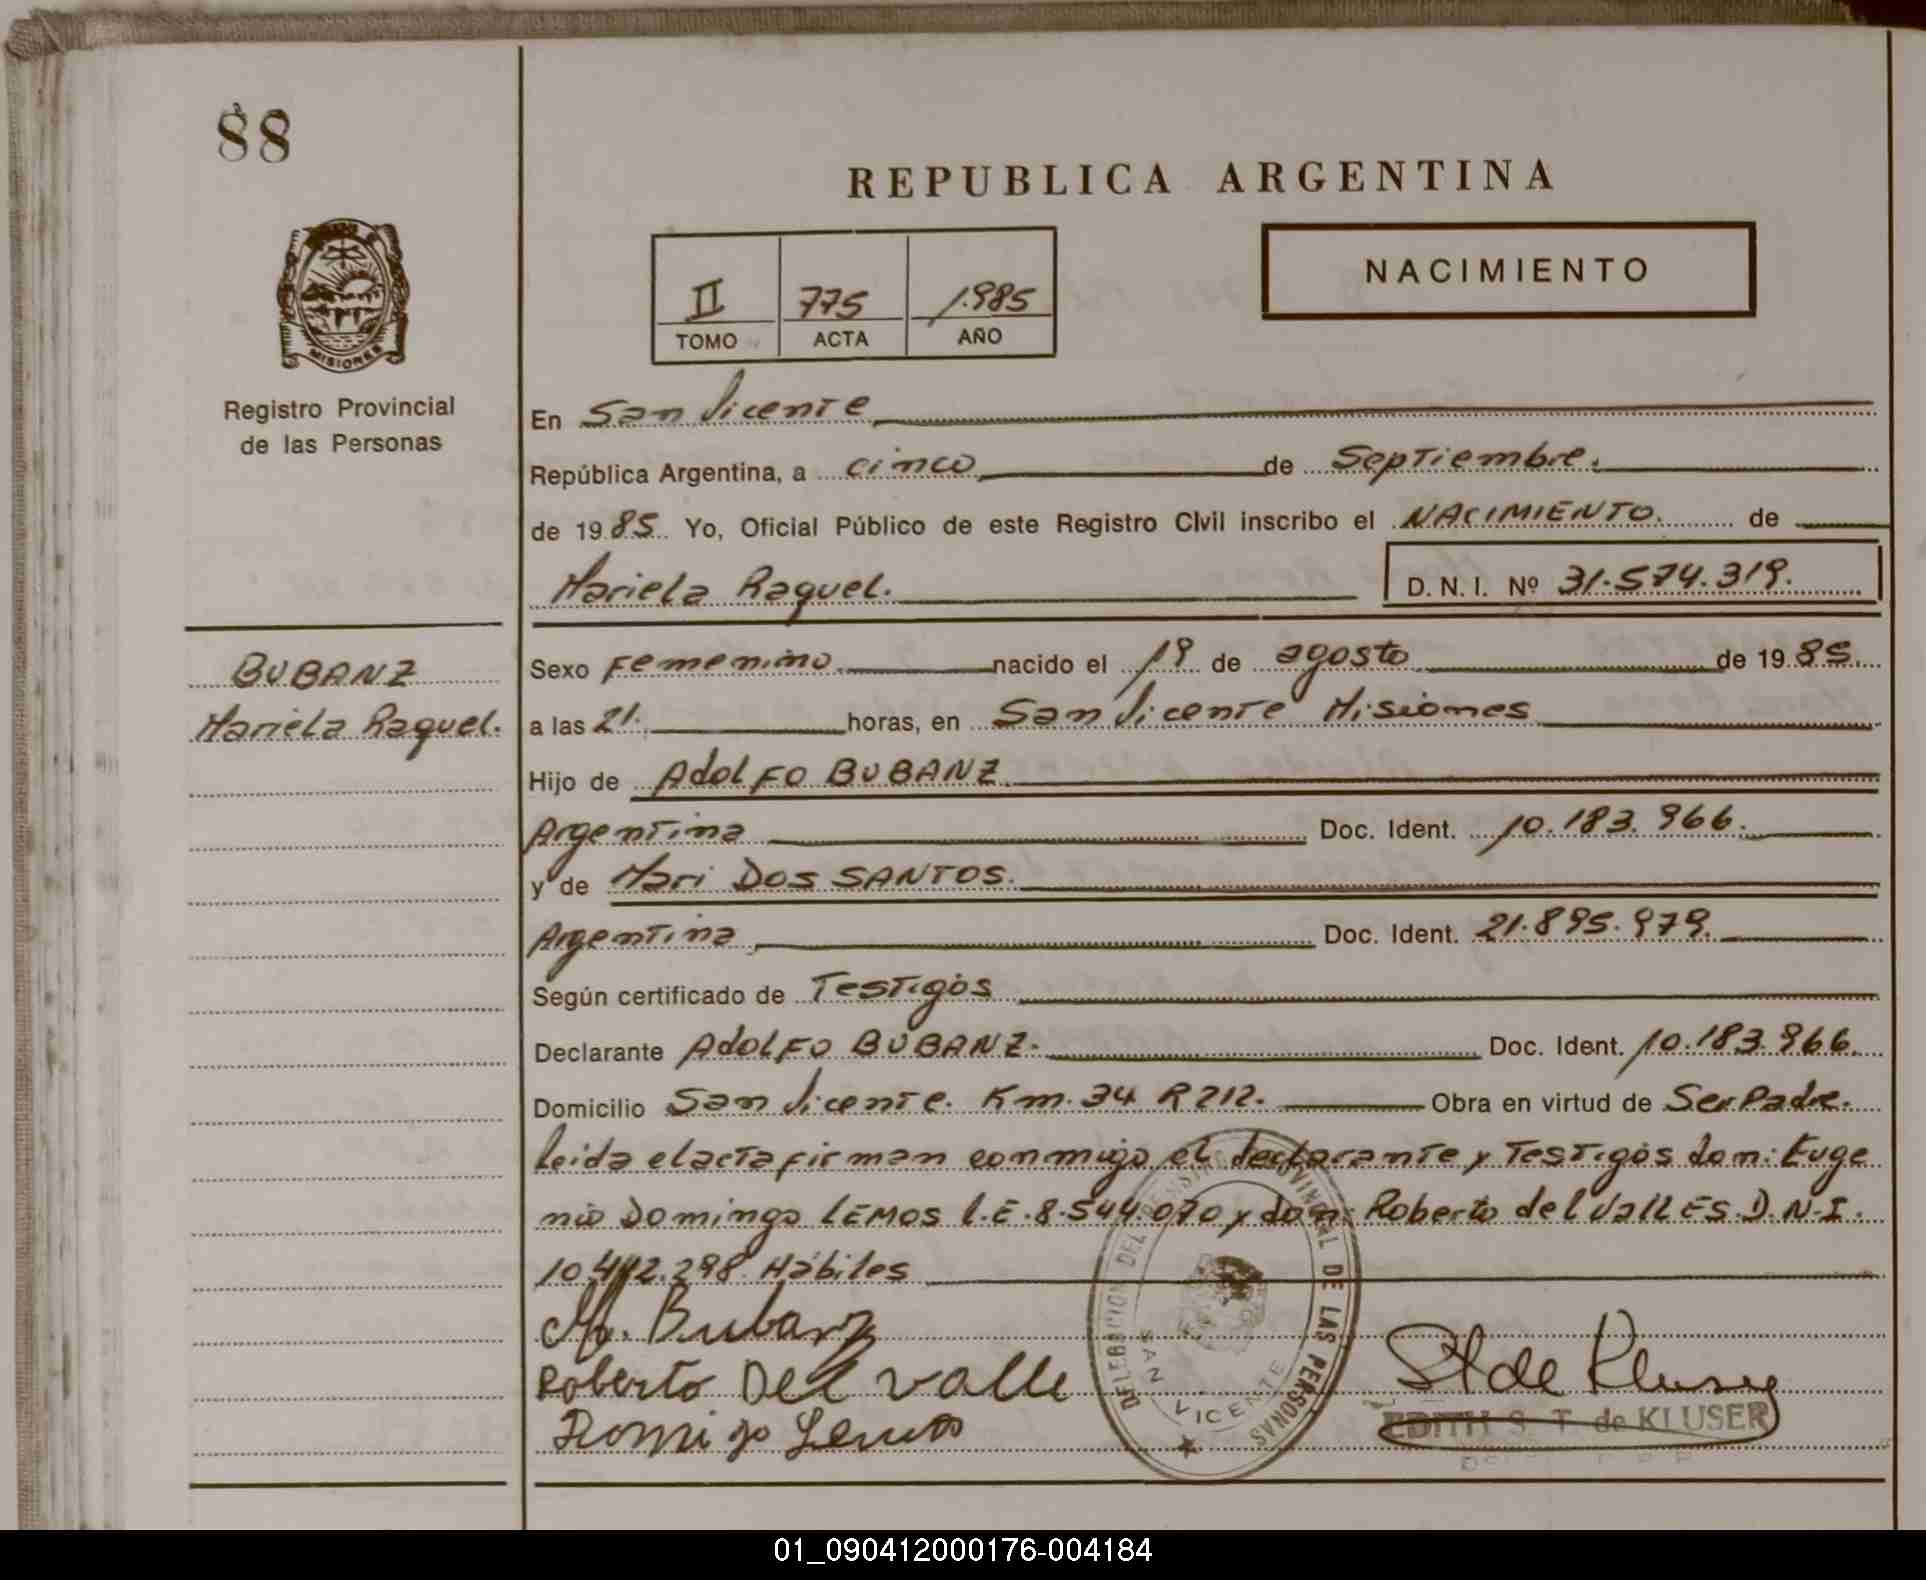 88
REPUBLICA ARGENTINA
MISIONES
Registro Provincial
de las Personas
II 775 1.985
TOMO ACTA AÑO
NACIMIENTO
En San Vicente
República Argentina, a cinco de Septiembre.
de 1985. Yo, Oficial Público de este Registro Civil inscribo el NACIMIENTO. de
Mariela Raquel. D. N. I. Nº 31.574.319.
BUBANZ
Mariela Raquel.
Sexo Femenino. nacido el 19 de agosto de 1985.
a las 21. horas, en San Vicente Misiones
Hijo de Adolfo BUBANZ
Argentina Doc. Ident. 10.183.966.
y de Mari DOS SANTOS.
Argentina Doc. Ident. 21.895.979.
Según certificado de Testigos
Declarante Adolfo BUBANZ. Doc. Ident. 10.183.966.
Domicilio San Vicente. Km. 34 R 212. Obra en virtud de Ser Padre.
Leida el acta firman conmigo el declarante y Testigos don: Euge
nio Domingo LEMOS L.E. 8.544.070 y don: Roberto del VallES. D.N.I.
10.442.298 Hábiles
Bubanz
Roberto Del valle
DELEGACION DEL REGISTRO PROVINCIAL DE LAS PERSONAS
SAN VICENTE
St de Kluser
EDITH S. T. de KLUSER
01_090412000176-004184